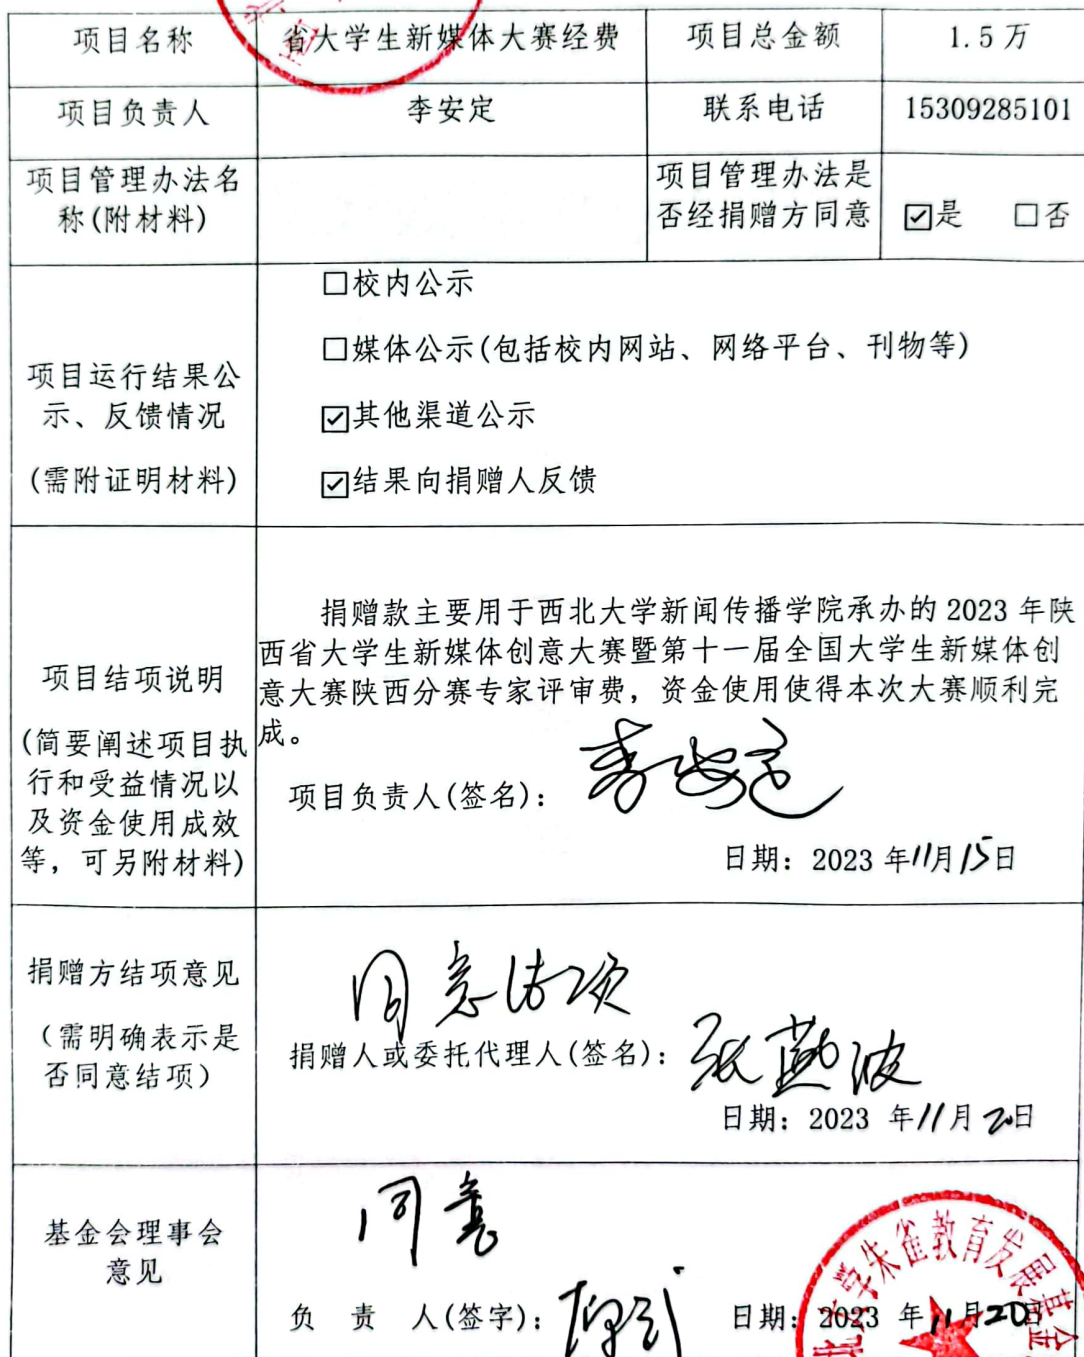 项目名称 省大学生新媒体大赛经费 项目总金额 1.5万
项目负责人 李安定 联系电话 15309285101
项目管理办法名
称(附材料)
项目管理办法是
否经捐赠方同意
☑是 □否
项目运行结果公
示、反馈情况
(需附证明材料)
□校内公示
□媒体公示(包括校内网站、网络平台、刊物等)
☑其他渠道公示
☑结果向捐赠人反馈
项目结项说明
(简要阐述项目执
行和受益情况以
及资金使用成效
等，可另附材料)
捐赠款主要用于西北大学新闻传播学院承办的 2023 年陕
西省大学生新媒体创意大赛暨第十一届全国大学生新媒体创
意大赛陕西分赛专家评审费，资金使用使得本次大赛顺利完
成。
项目负责人(签名)：李安定
日期：2023 年11月15日
捐赠方结项意见
（需明确表示是
否同意结项）
同意结项
捐赠人或委托代理人(签名)：张燕波
日期：2023 年11月20日
基金会理事会
意见
同意
负 责 人(签字)：
日期：2023 年11月20日
北大学朱雀教育发展基金